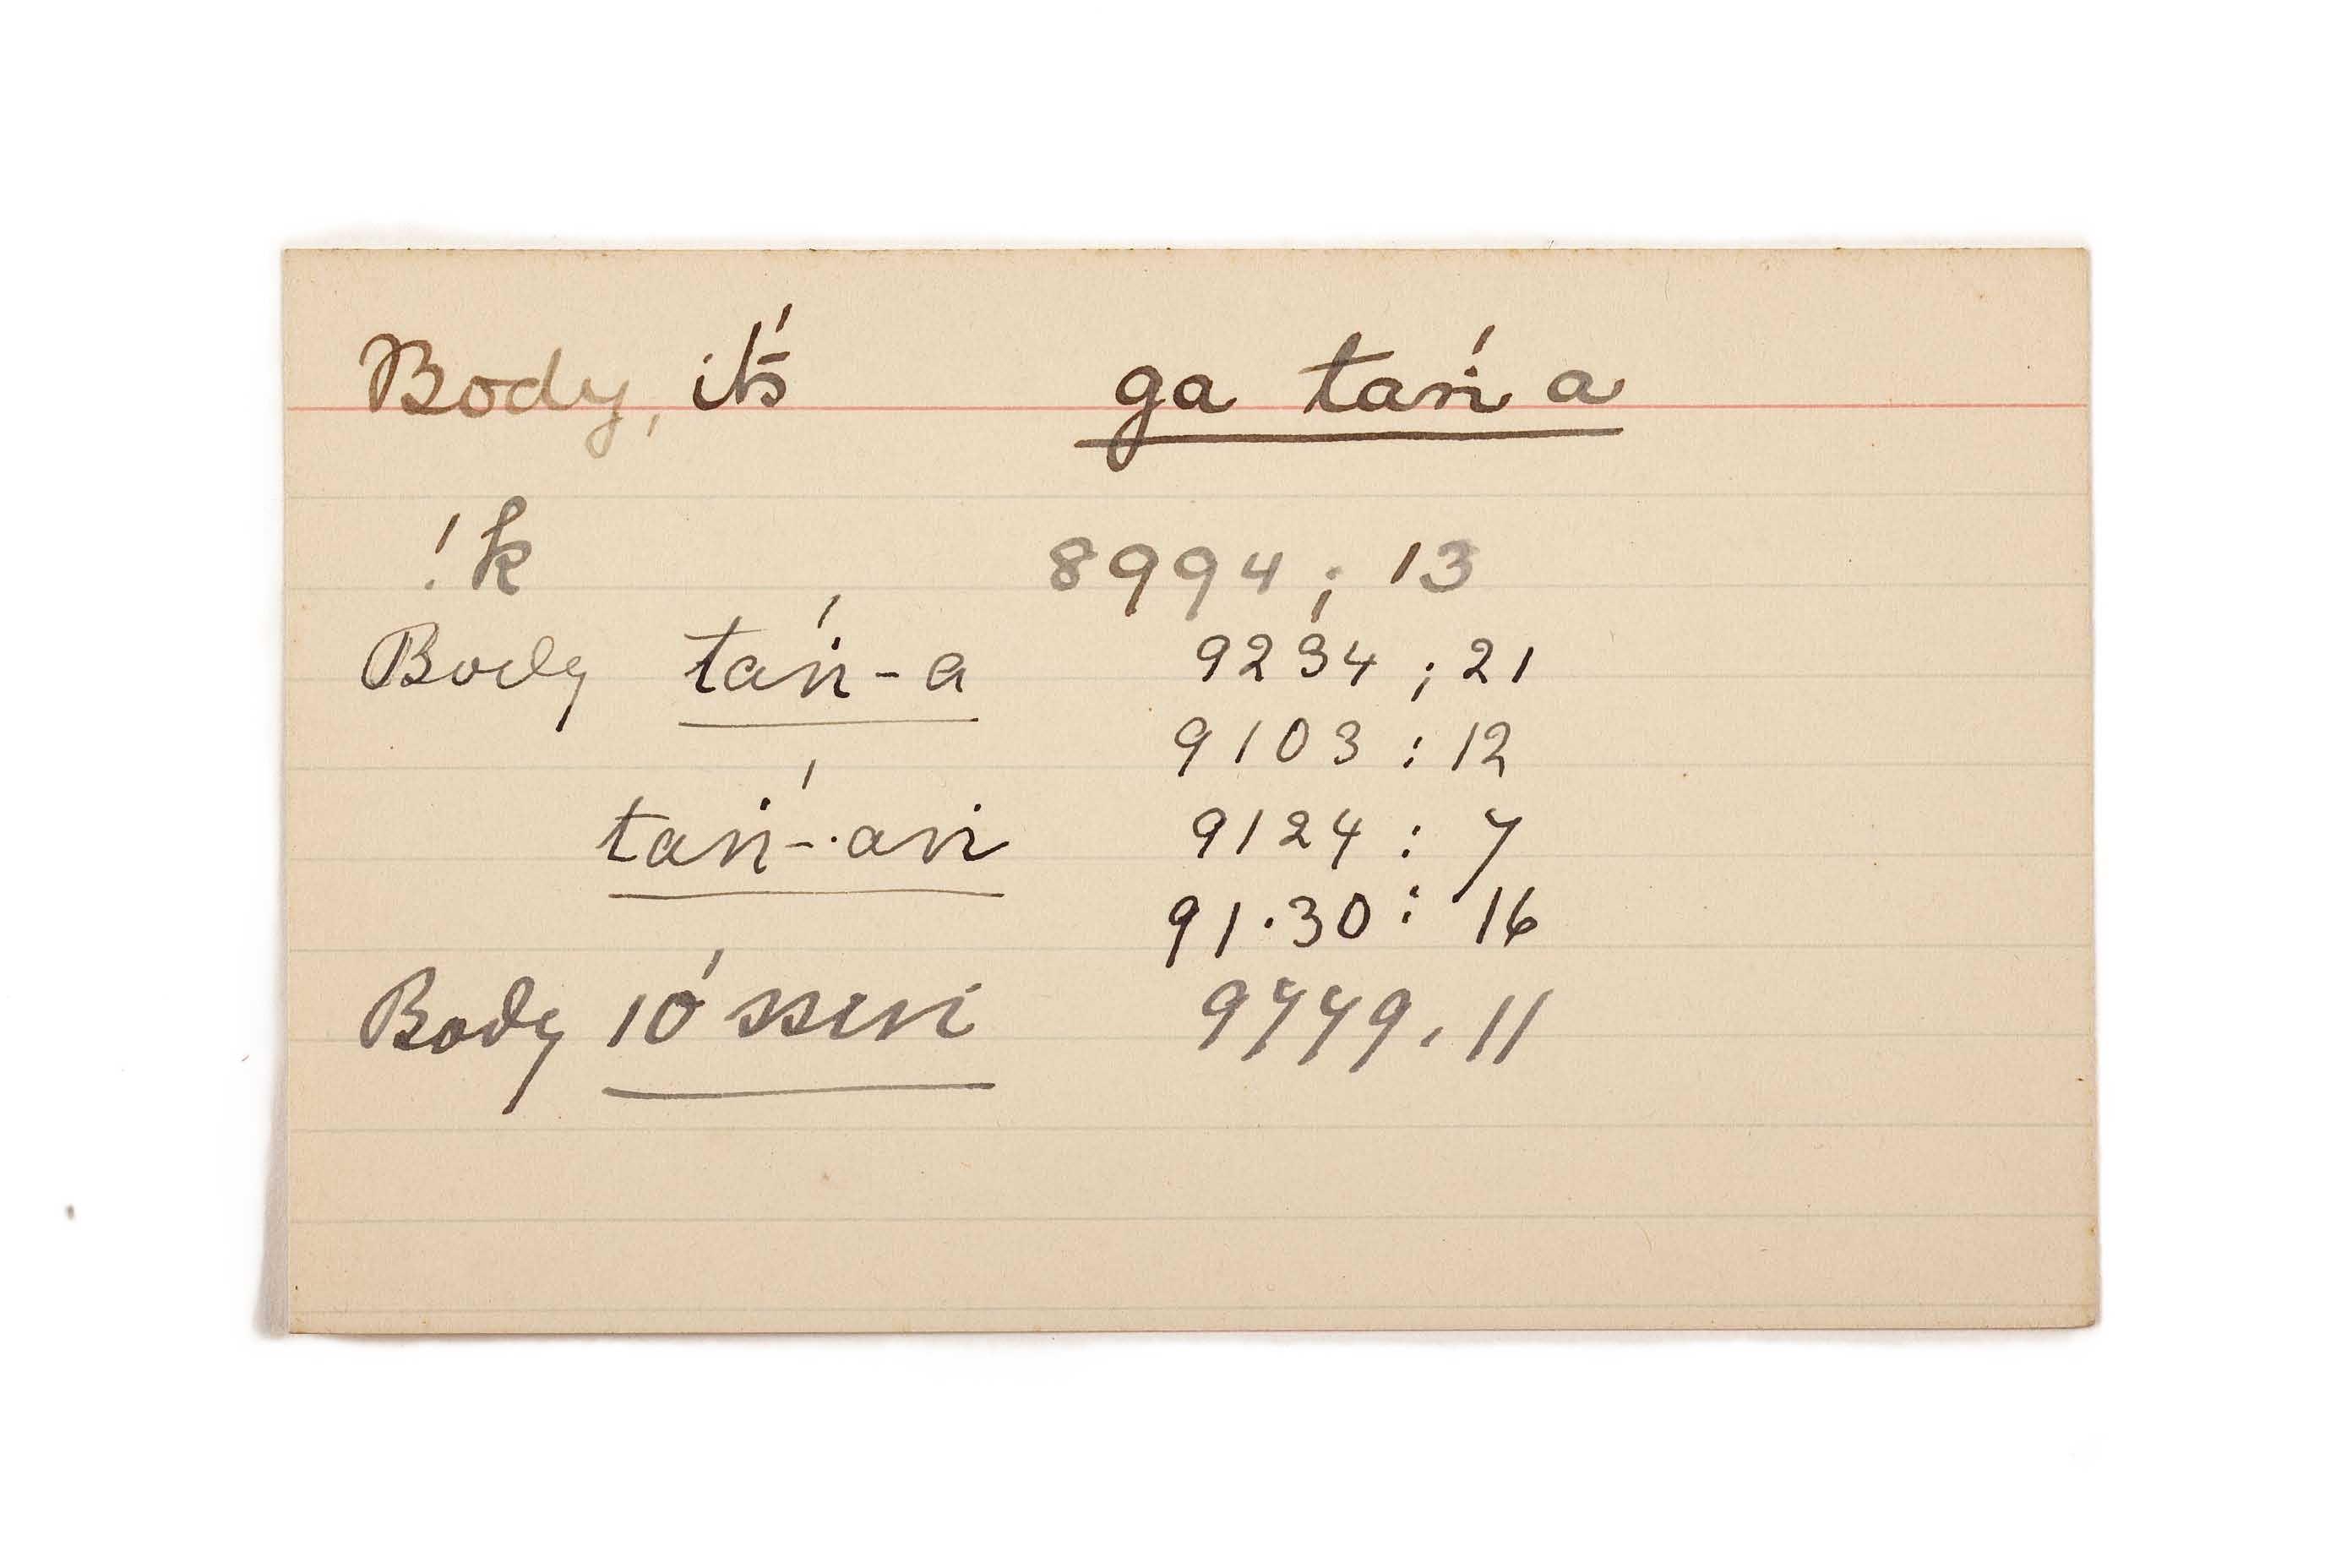 Body, it's ga taṅ́ a
!k 8994; 13
Body taṅ́-a 9234; 21
9103: 12
taṅ́-aṅ 9124: 7
91.30: 16
Body ıó sseṅ 9779. 11